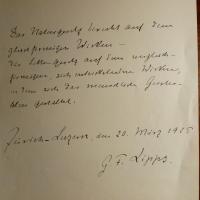 Das Naturgesetz beruht auf dem
gleichförmigen Wirken –
das Sittengesetz auf dem ungleich-
förmigen, sich entwickelnden Wirken,
in dem sich das menschliche
gestaltet.
Zürich-Luzern, den 20. März 1925
G. F. Lipps.